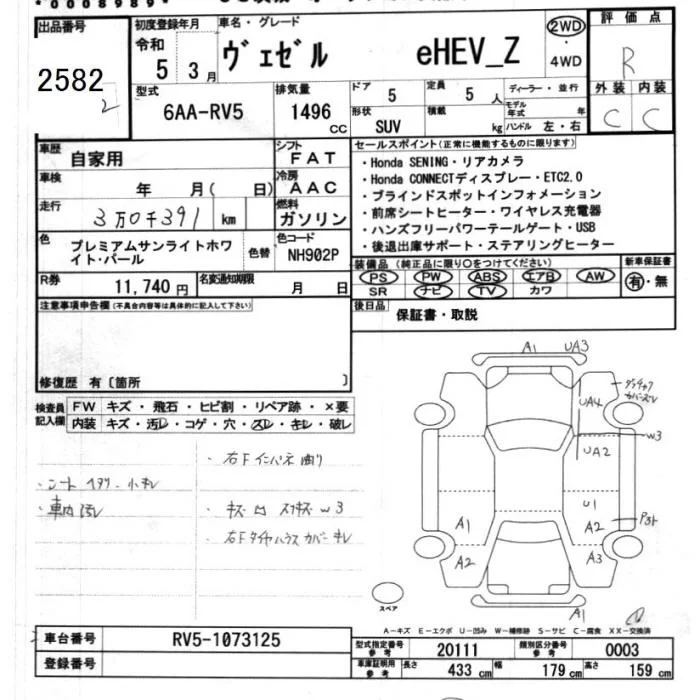 *0008989*
出品番号
2582
2
初度登録年月
令和
5年 3月
車名・グレード
ヴェゼル eHEV_Z
2WD
・
4WD
評価点
R
外装 内装
C C
型式
6AA-RV5
排気量
1496 CC
ドア
5
定員
5人
形状
SUV
積載
kg
ディーラー・並行
モデル年式 年
ハンドル 左・右
車歴
自家用
シフト
FAT
車検
年 月( 日)
冷房
AAC
走行
3万0千391 km
燃料
ガソリン
色
プレミアムサンライトホワイト・パール
色替
色コード
NH902P
R券
11,740円
名変通知期限
月 日
セールスポイント(正常に機能するものに限ります)
・Honda SENING・リアカメラ
・Honda CONNECTディスプレー・ETC2.0
・ブラインドスポットインフォメーション
・前席シートヒーター・ワイヤレス充電器
・ハンズフリーパワーテールゲート・USB
・後退出庫サポート・ステアリングヒーター
装備品(純正品に限り○をつけてください)
PS PW ABS エアB AW
SR ナビ TV カワ
新車保証書
有・無
後日品
保証書・取説
注意事項申告欄(不具合内容等は具体的に記入して下さい)
修復歴 有〔箇所 〕
検査員記入欄
FW キズ・飛石・ヒビ割・リペア跡・×要
内装 キズ・汚レ・コゲ・穴・スレ・キレ・破レ
・右Fインパネ曲り
・シートヘタリ・小キレ
・車内汚レ
・キズ凹 スリキズ W3
・右Fタイヤハウスカバーキレ
A1 UA3
UA4
W3
UA2
U1
A2
A3
A1
A2
A1
スペア
A-キズ E-エクボ U-凹み W-補修跡 S-サビ C-腐食 XX-交換済
車台番号
RV5-1073125
登録番号
型式指定番号 参考
20111
類別区分番号 参考
0003
車庫証明用 参考
長さ 433cm 幅 179cm 高さ 159cm